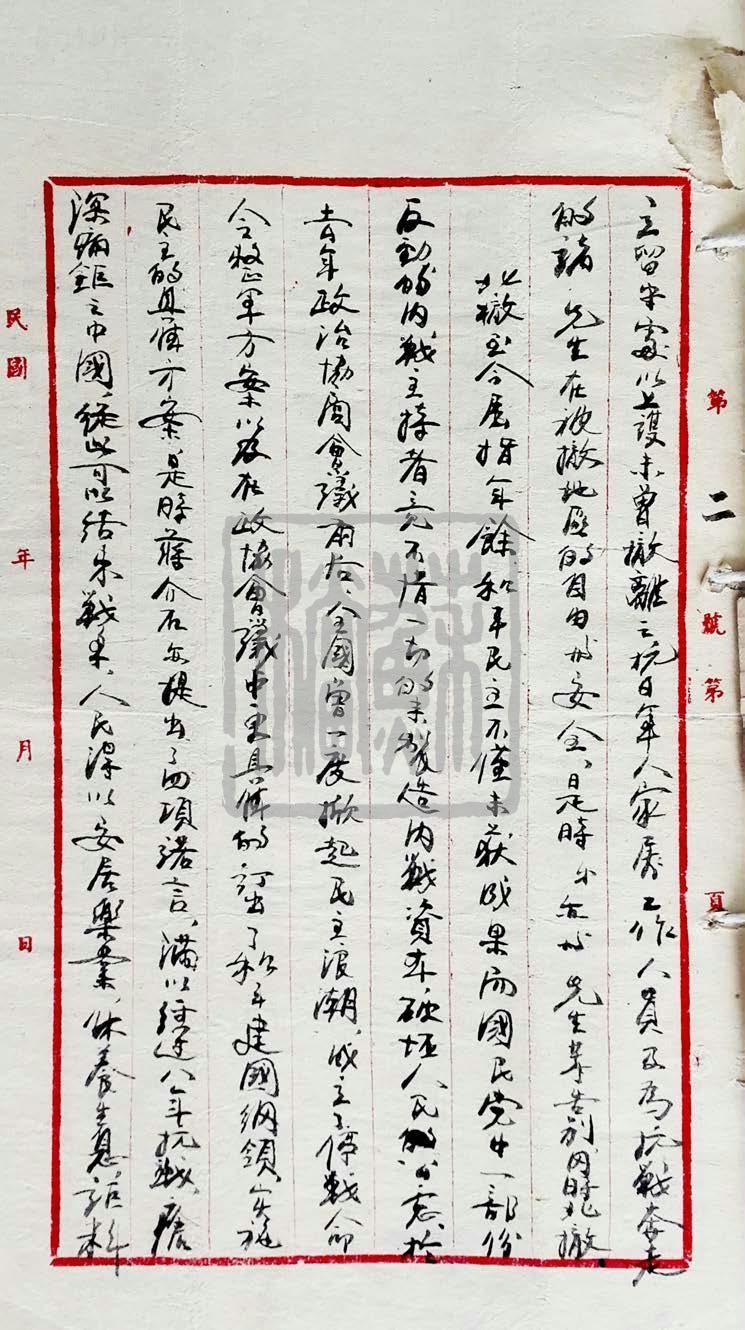 立留守處以上護未曾撤離之抗日軍人家屬工作人員及為抗戰奔走
的諸 先生在被撤地區的自由與安全、是時 曾與 先生等告別、同時北撤、
北撤至今屈指年餘和平民主不僅未獲成果而國民党中一部份
反動的內戰主持者竟不惜一切的來製造內戰資本破壞人民的 於
去年政治協商會議前后、全國曾一度掀起民主浪潮、成立了停戰命
令整軍方案以及在政協會議中更具体的訂出了和平建國綱領、实施
民主的具体方案是時蔣介石亦提出了四項諾言、滿以經过八年抗戰、瘡
深痛鉅之中國、從此可以结束戰争、人民得以安居樂業、休養生息、詎料
第二號第 頁
民國 年 月 日